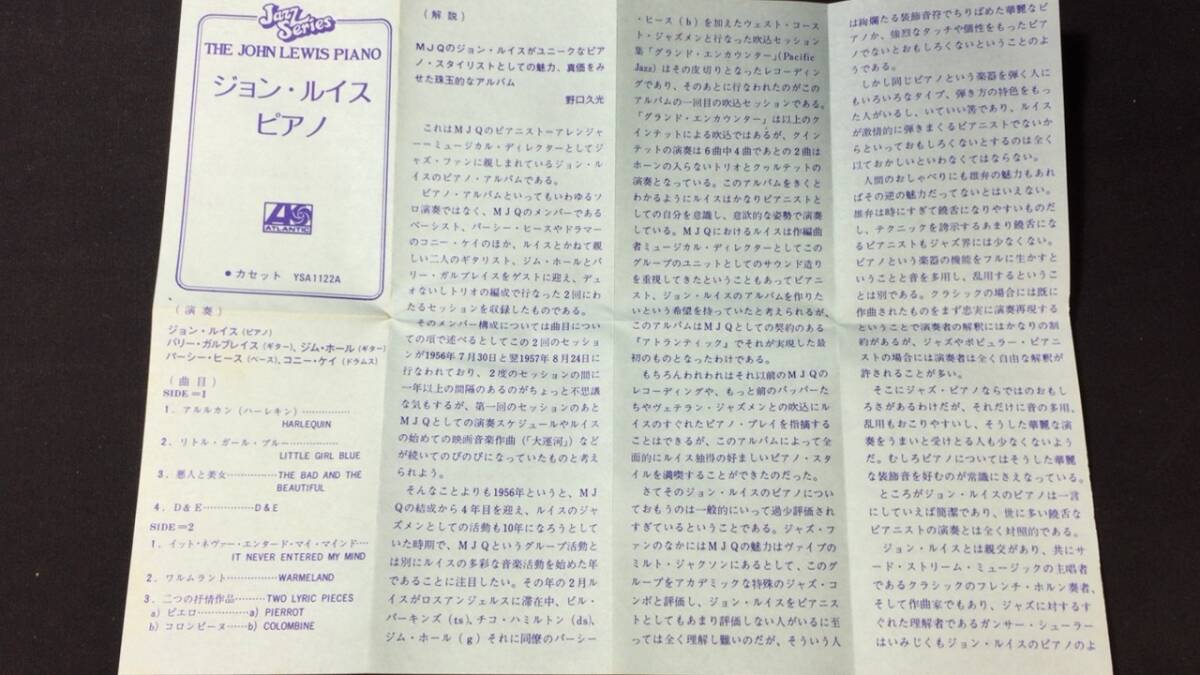 Jazz Series
THE JOHN LEWIS PIANO
ジョン・ルイス
ピアノ
ATLANTIC
●カセット YSA1122A
(演奏)
ジョン・ルイス(ピアノ)
バリー・ガルブレイス(ギター)、ジム・ホール(ギター)
パーシー・ヒース(ベース)、コニー・ケイ(ドラムス)
(曲目)
SIDE=1
1. アルルカン(ハーレキン)…………
HARLEQUIN
2. リトル・ガール・ブルー…………
LITTLE GIRL BLUE
3. 悪人と美女…………THE BAD AND THE
BEAUTIFUL
4. D&E…………D&E
SIDE=2
1. イット・ネヴァー・エンタード・マイ・マインド…
IT NEVER ENTERED MY MIND
2. ワルムラント…………WARMELAND
3. 二つの抒情作品………TWO LYRIC PIECES
a) ピエロ…………a) PIERROT
b) コロンビーヌ……b) COLOMBINE
(解説)
MJQのジョン・ルイスがユニークなピア
ノ・スタイリストとしての魅力、真価をみ
せた珠玉的なアルバム
野口久光
これはMJQのピアニストーアレンジャ
ーーミュージカル・ディレクターとしてジ
ャズ・ファンに親しまれているジョン・ル
イスのピアノ・アルバムである。
ピアノ・アルバムといってもいわゆるソ
ロ演奏ではなく、MJQのメンバーである
ベーシスト、パーシー・ヒースやドラマー
のコニー・ケイのほか、ルイスとかねて親
しい二人のギタリスト、ジム・ホールとバ
リー・ガルブレイスをゲストに迎え、デュ
オないしトリオの編成で行なった2回にわ
たるセッションを収録したものである。
そのメンバー構成については曲目につい
ての項で述べるとしてこの2回のセッション
が1956年7月30日と翌1957年8月24日に
行なわれており、2度のセッションの間に
一年以上の間隔のあるのがちょっと不思議
な気もするが、第一回のセッションのあと
MJQとしての演奏スケジュールやルイス
の始めての映画音楽作曲(「大運河」)など
が続いてのびのびになっていたものと考え
られよう。
そんなことよりも1956年というと、MJ
Qの結成から4年目を迎え、ルイスのジャ
ズメンとしての活動も10年になろうとして
いた時期で、MJQというグループ活動と
は別にルイスの多彩な音楽活動を始めた年
であることに注目したい。その年の2月ル
イスがロスアンジェルスに滞在中、ビル・
パーキンズ(ts)、チコ・ハミルトン(ds)、
ジム・ホール(g)それに同僚のパーシー
・ヒース(b)を加えたウェスト・コース
ト・ジャズメンと行なった吹込セッション
集「グランド・エンカウンター」(Pacific
Jazz)はその皮切りとなったレコーディン
グであり、そのあとに行なわれたのがこの
アルバムの一回目の吹込セッションである。
「グランド・エンカウンター」は以上のク
インテットによる吹込ではあるが、クイン
テットの演奏は6曲中4曲であとの2曲は
ホーンの入らないトリオとクヮルテットの
演奏となっている。このアルバムをきくと
わかるようにルイスはかなりピアニストと
しての自分を意識し、意欲的な姿勢で演奏
している。MJQにおけるルイスは作編曲
者ミュージカル・ディレクターとしてこの
グループのユニットとしてのサウンド造り
を重視してきたということもあってピアニ
スト、ジョン・ルイスのアルバムを作りた
いという希望を持っていたと考えられるが、
このアルバムはMJQとしての契約のある
『アトランティック』でそれが実現した最
初のものとなったわけである。
もちろんわれわれはそれ以前のMJQの
レコーディングや、もっと前のバッパーた
ちやヴェテラン・ジャズメンとの吹込にル
イスのすぐれたピアノ・プレイを指摘する
ことはできるが、このアルバムによって全
面的にルイス独得の好ましいピアノ・スタ
イルを満喫することができたのだった。
さてそのジョン・ルイスのピアノについ
ておもうのは一般的にいって過少評価され
すぎているということである。ジャズ・フ
ァンのなかにはMJQの魅力はヴァイブの
ミルト・ジャクソンにあるとして、このグ
ループをアカデミックな特殊のジャズ・コ
ンボと評価し、ジョン・ルイスをピアニス
トとしてもあまり評価しない人がいるに至
っては全く理解し難いのだが、そういう人
は絢爛たる装飾音符でちりばめた華麗なピ
アノか、強烈なタッチや個性をもったピア
ノでないとおもしろくないということのよ
うである。
しかし同じピアノという楽器を弾く人に
もいろいろなタイプ、弾き方の特色をもっ
た人がいるし、いていい筈であり、ルイス
が激情的に弾きまくるピアニストでないか
らといっておもしろくないとするのは全く
以ておかしいといわなくてはならない。
人間のおしゃべりにも雄弁の魅力もあれ
ばその逆の魅力だってないとはいえない。
雄弁は時にすぎて饒舌になりやすいものだ
し、テクニックを誇示するあまり饒舌にな
るピアニストもジャズ界には少なくない。
ピアノという楽器の機能をフルに生かすと
いうことと音を多用し、乱用するというこ
ととは別である。クラシックの場合には既に
作曲されたものをまず忠実に演奏再現する
ということで演奏者の解釈にはかなりの制
約があるが、ジャズやポピュラー・ピアニ
ストの場合には演奏者は全く自由な解釈が
許されることが多い。
そこにジャズ・ピアノならではのおもし
ろさがあるわけだが、それだけに音の多用、
乱用もおこりやすいし、そうした華麗な演
奏をうまいと受けとる人も少なくないよう
だ。むしろピアノについてはそうした華麗
な装飾音を好むのが常識にさえなっている。
ところがジョン・ルイスのピアノは一言
にしていえば簡潔であり、世に多い饒舌な
ピアニストの演奏とは全く対照的である。
ジョン・ルイスとは親交があり、共にサ
ード・ストリーム・ミュージックの主唱者
であるクラシックのフレンチ・ホルン奏者、
そして作曲家でもあり、ジャズに対するす
ぐれた理解者であるガンサー・シューラー
はいみじくもジョン・ルイスのピアノのよ